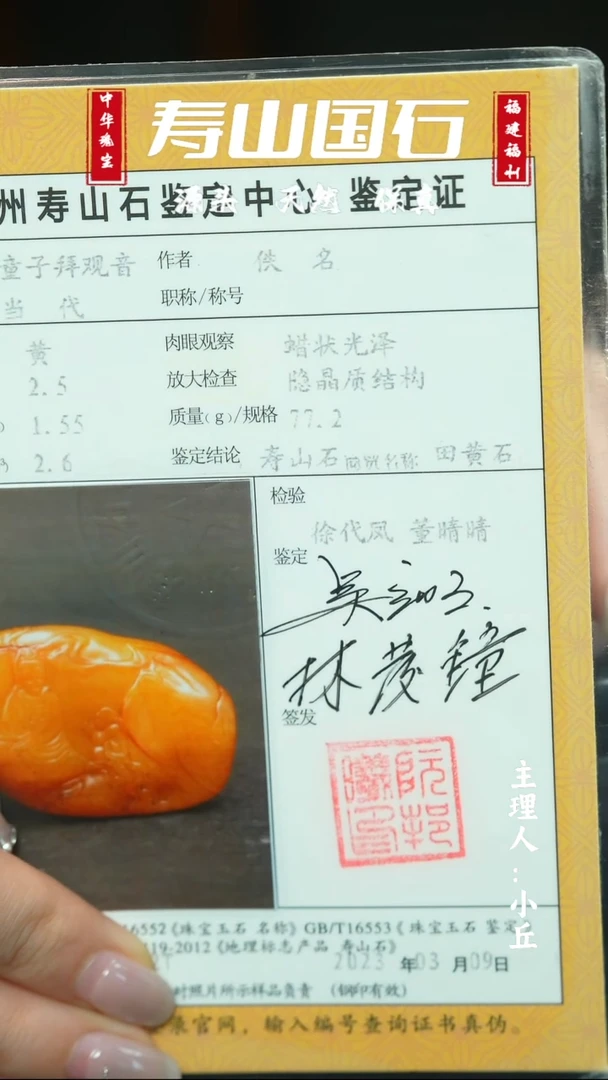 中华瑰宝
寿山国石
福建福州
州寿山石鉴定中心 鉴定证
天然 保真
童子拜观音 作者 佚 名
当 代 职称/称号
黄 肉眼观察 蜡状光泽
2.5 放大检查 隐晶质结构
1.55 质量(g)/规格 77.2
2.6 鉴定结论 寿山石 商贸名称: 田黄石
检验
徐代凤 董晴晴
鉴定
林茂鐘
签发
主理人:小丘
16552《珠宝玉石 名称》GB/T16553《珠宝玉石 鉴定》
19-2012《地理标志产品 寿山石》
2023 年03 月09日
对照片所示样品负责 (钢印有效)
官网,输入编号查询证书真伪。